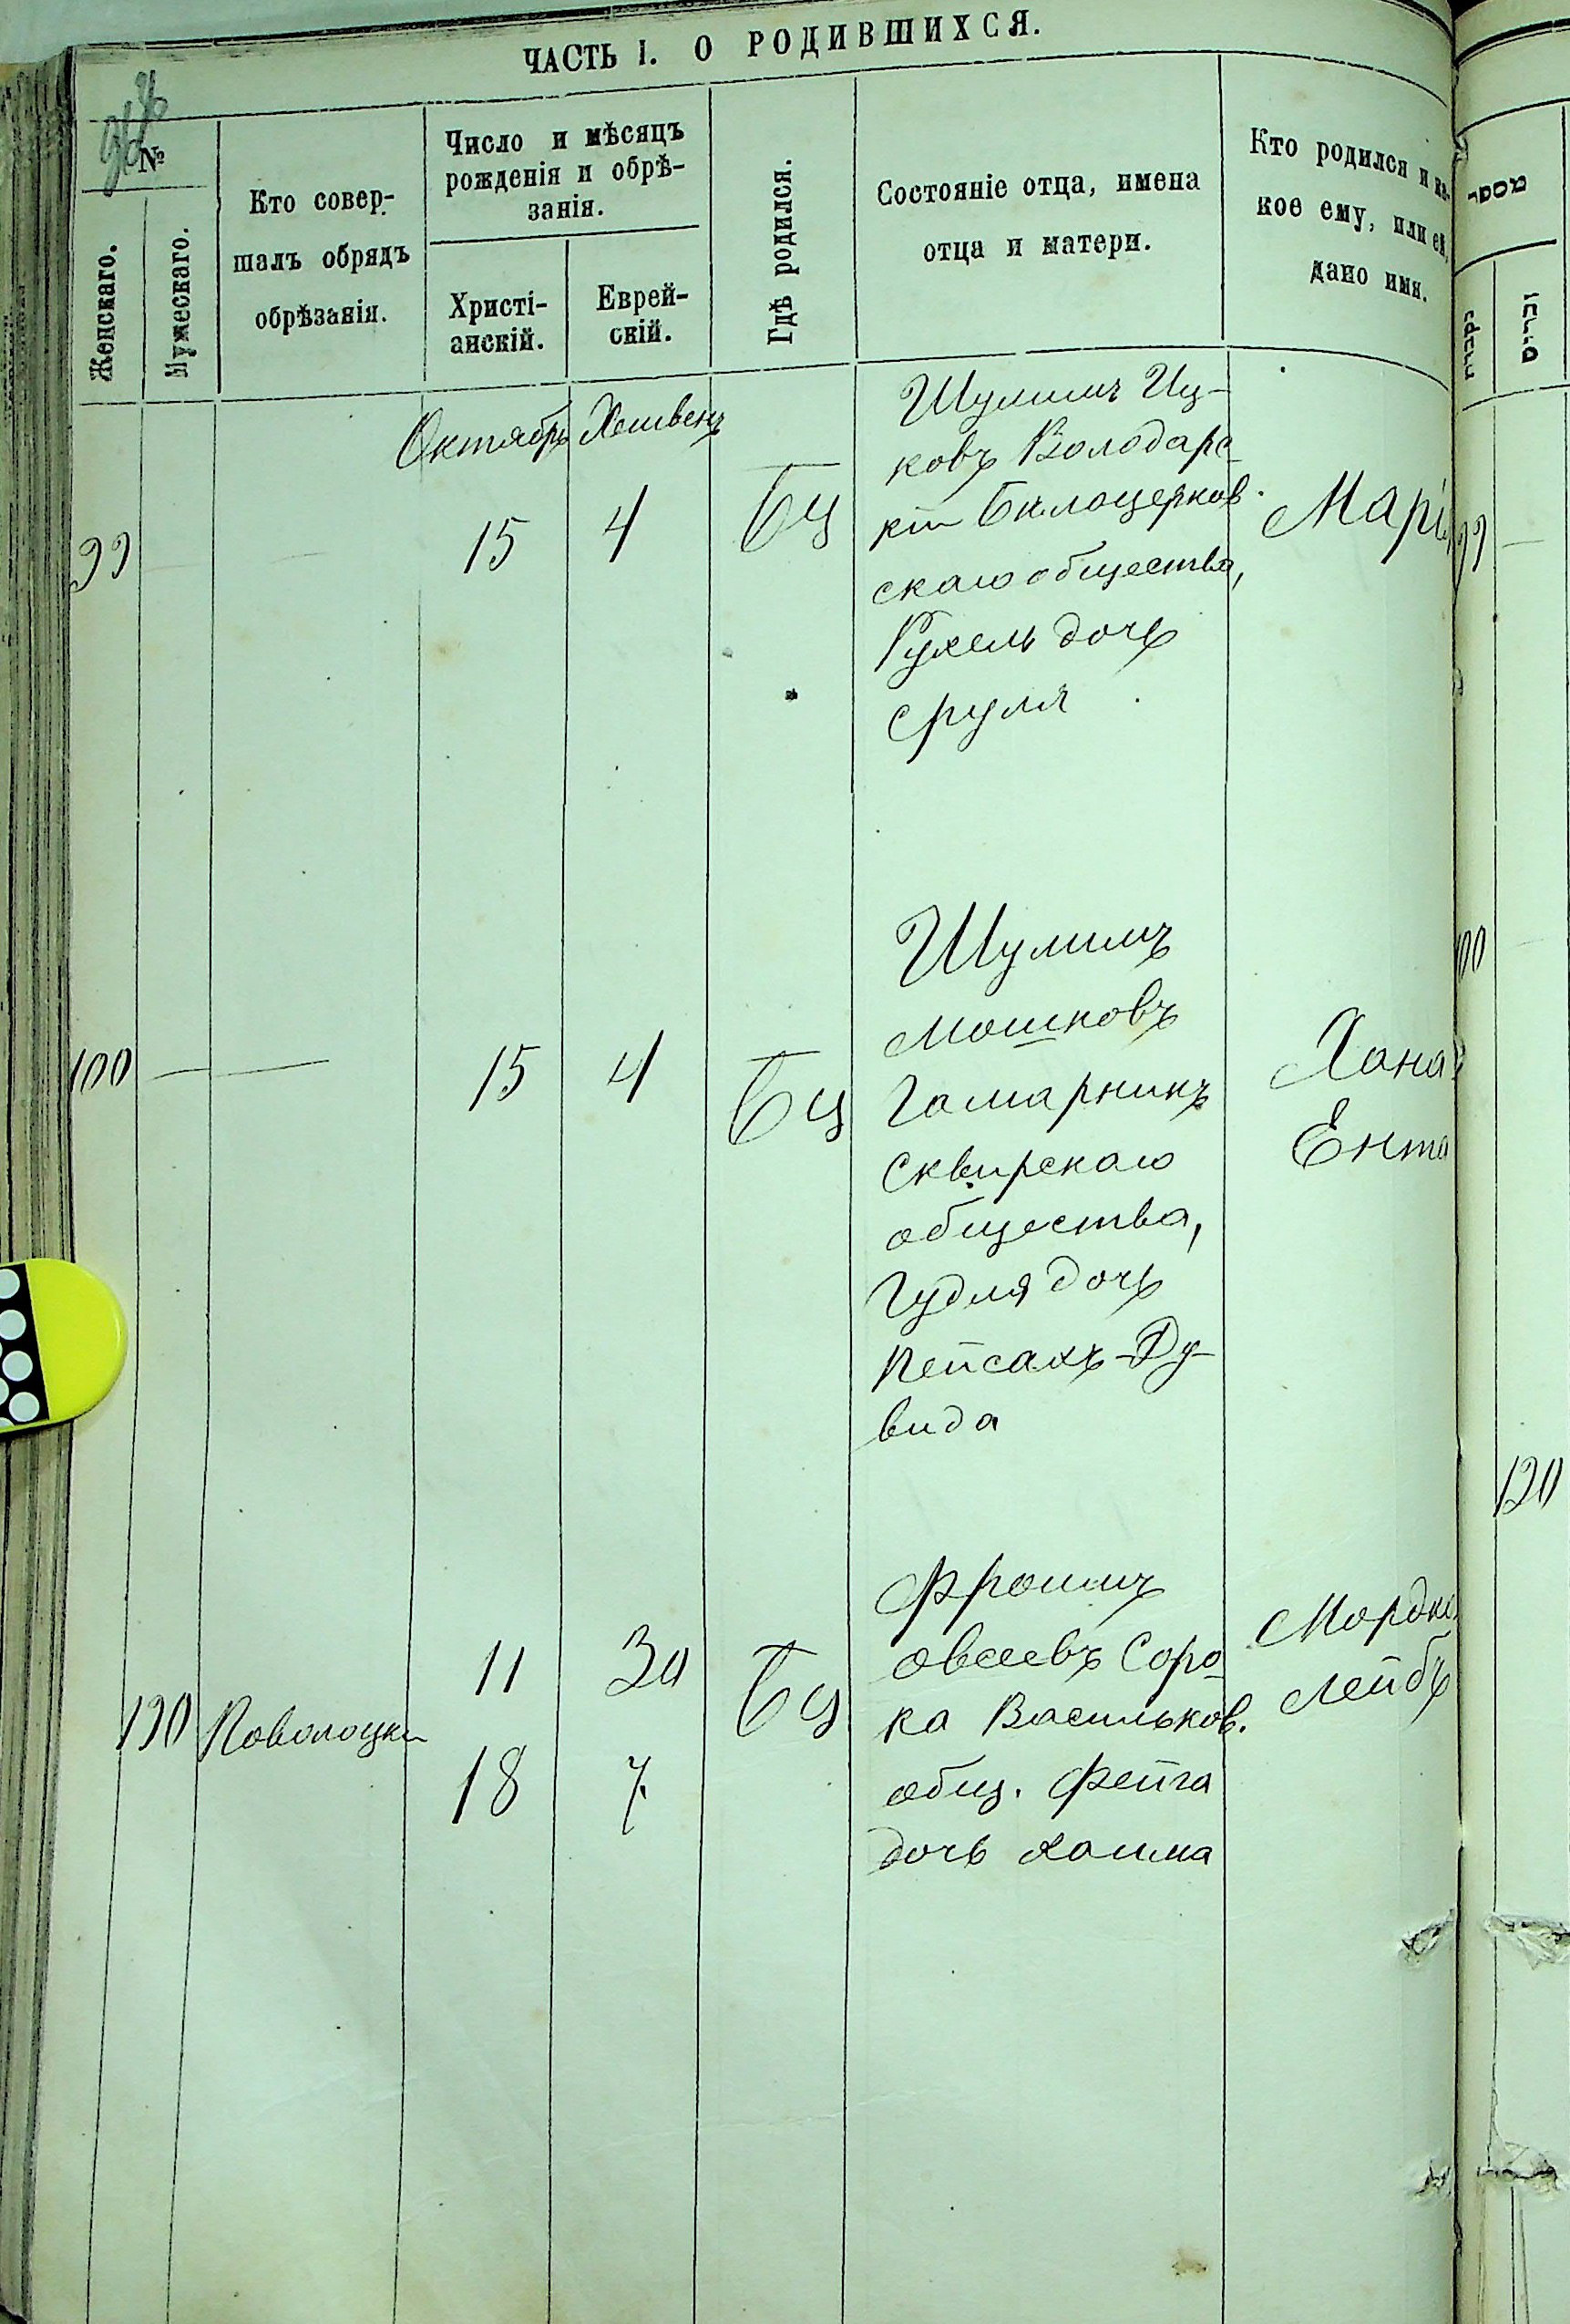 ЧАСТЬ I. О РОДИВШИХСЯ.
№
Женскаго.
Мужескаго.
Кто совер-
шалъ обрядъ
обрѣзанія.
Число и мѣсяцъ
рожденія и обрѣ-
занія.
Христі-
анскій.
Еврей-
скій.
Гдѣ родился.
Состояніе отца, имена
отца и матери.
Кто родился и ка-
кое ему, или ей,
дано имя.
Октябрь Хешвенъ
99 15 4 Бц
Шулимъ Иц-
ковъ Володарс-
кій Бѣлоцерков.
скаго общества,
Рухель дочь
Сруля
Марія
100 — — 15 4 Бц
Шулимъ
Мошковъ
Гамарникъ
Сквирскаго
общества,
Гудля дочь
Пейсахъ-Ду-
вида
Хана
Ента
120 Поволоцкій
11 30 Бц
18 7
Фроимъ
Овсеевъ Соро-
ка Васильков.
общ. Фейга
дочь Хаима
Мордко
Лейбъ
99
100
120